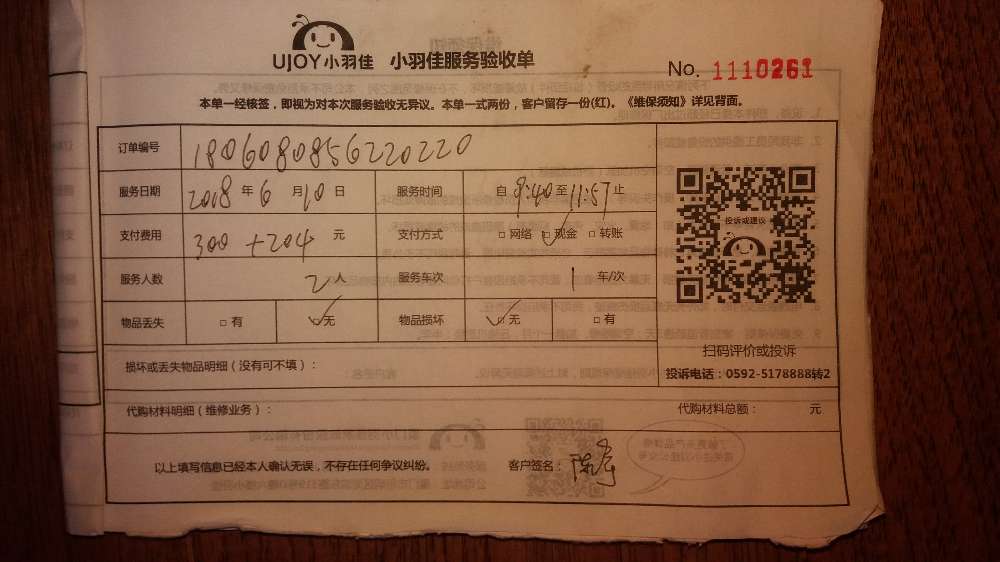 UJOY小羽佳 小羽佳服务验收单
No. 1110261
本单一经核签，即视为对本次服务验收无异议。本单一式两份，客户留存一份(红)。《维保须知》详见背面。
订单编号 1806080856220220
服务日期 2018 年 6 月 10 日 服务时间 自 9:40 至 11:57 止
支付费用 300 + 204 元 支付方式 □ 网络 ☑ 现金 □ 转账
服务人数 2 人 服务车次 1 车/次
物品丢失 □ 有 ☑ 无 物品损坏 ☑ 无 □ 有
投诉或建议
扫码评价或投诉
投诉电话：0592-5178888转2
损坏或丢失物品明细（没有可不填）：
代购材料明细（维修业务）： 代购材料总额： 元
以上填写信息已经本人确认无误，不存在任何争议纠纷。 客户签名：陈